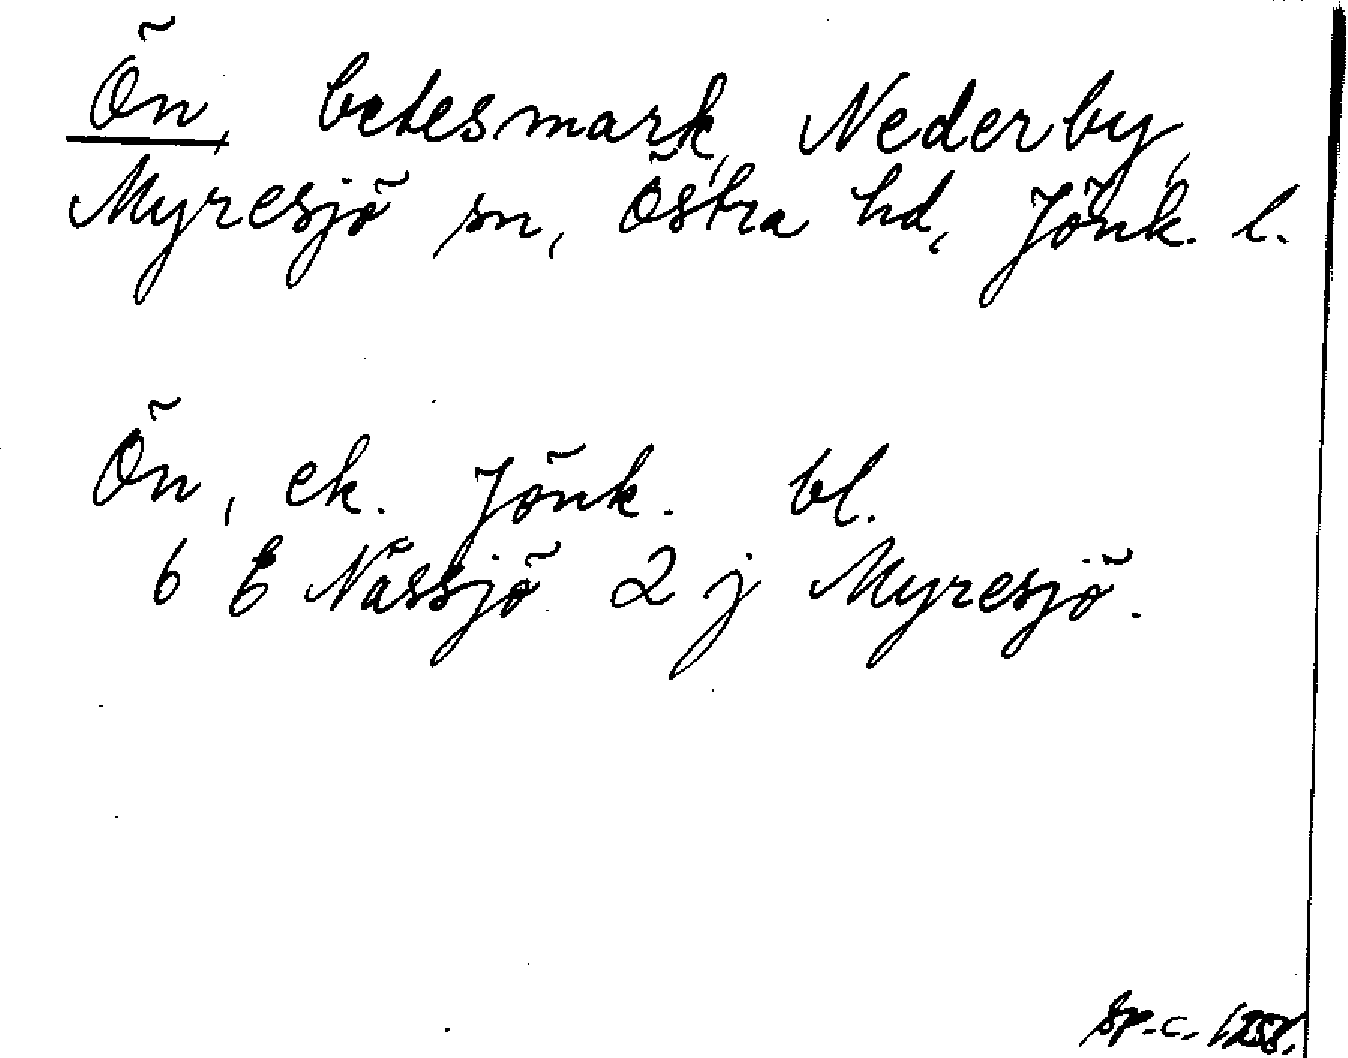 Ön, betesmark, Nederby,
Myresjö sn, Östra hd, Jönk. l.
Ön, ek. Jönk. bl.
6 E Nässjö 2 j Myresjö.
Sp. c.